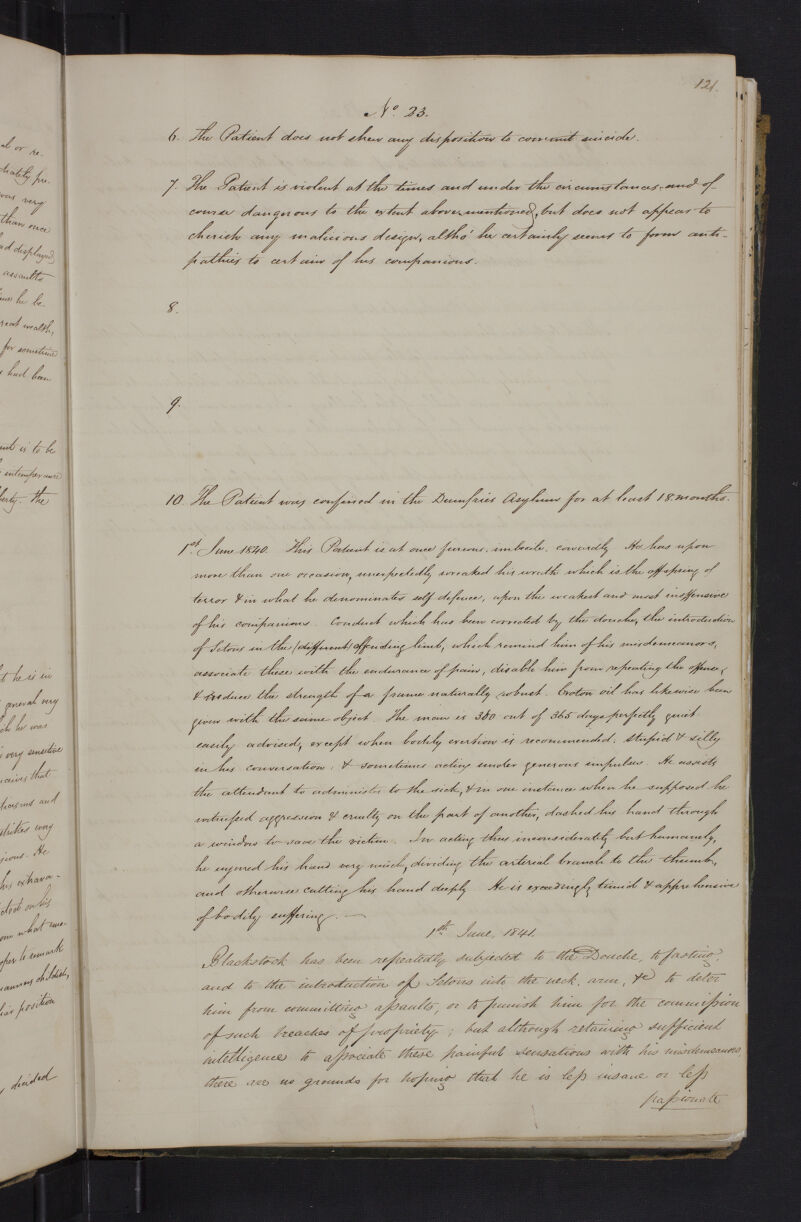 al or re-
very
than once
ad displayed
assaults
he be-
great wealth,
for sometime
had been
is to be
intemperance
the
he is in
general very
he was
very sensitive
that
and
very
He
his extrava-
on his
what
to remark
childish,
his position
decided
121.
No. 23.
6. The Patient does not shew any disposition to commit suicide.
7. The Patient is violent at the times and under the circumstances, and of
course dangerous to the extent above mentioned, but does not appear to
cherish any malicious design, altho' he certainly seems to form anti-
pathies to certain of his companions.
8.
9.
10. The Patient was confined in the Dumfries Asylum for at least 18 months.
1st June 1840. This Patient is at once furious, imbecile, cowardly. He has upon
more than one occasion, unexpectedly wreaked his wrath which is the offspring of
terror & in what he denominates self defence, upon the weakest and most inoffensive
of his companions. Conduct which has been corrected by the douche, the introduction
of Setons in the (different) offending limb, which remind him of his misdemeanors,
associate these with the endurance of pain, disable him from repeating the offence,
& reduce the strength of a frame naturally robust. Croton oil has likewise been
given with the same object. The man is 380 out of 365 days perfectly quiet
easily advised, except when bodily exertion is recommended, stupid & silly
in his conversation, & sometimes acting under generous impulses. He assists
the attendant to administer to the sick, & in one instance when he supposed he
witnessed aggression & cruelty on the part of another, dashed his hand through
a window to save the victim. In acting thus inconsiderately but humanely,
he injured his hand very much, dividing the arterial branch to the thumb,
and otherwise cutting his hand deeply. He is exceedingly timid & apprehensive
of bodily suffering. —
1st June, 1841.
Blackstock has been repeatedly subjected to the Douche, to fasting,
and to the introduction of Setons into the neck, arm, &c to deter
him from committing assaults, or to punish him for the commission
of such breaches of propriety; but although retaining sufficient
intelligence to associate these painful sensations with his misdemeanors,
there are no grounds for hoping that he is less insane or less
passionate